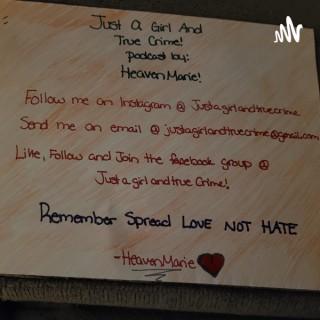 Just A Girl And
True Crime!
podcast by:
HeavenMarie!
Follow me on Instagram @ Justagirlandtruecrime
Send me an email @ justagirlandtruecrime@gmail.com
Like, Follow and Join the facebook group @
Just a girl and true Crime!
Remember Spread LOVE NOT HATE
-HeavenMarie